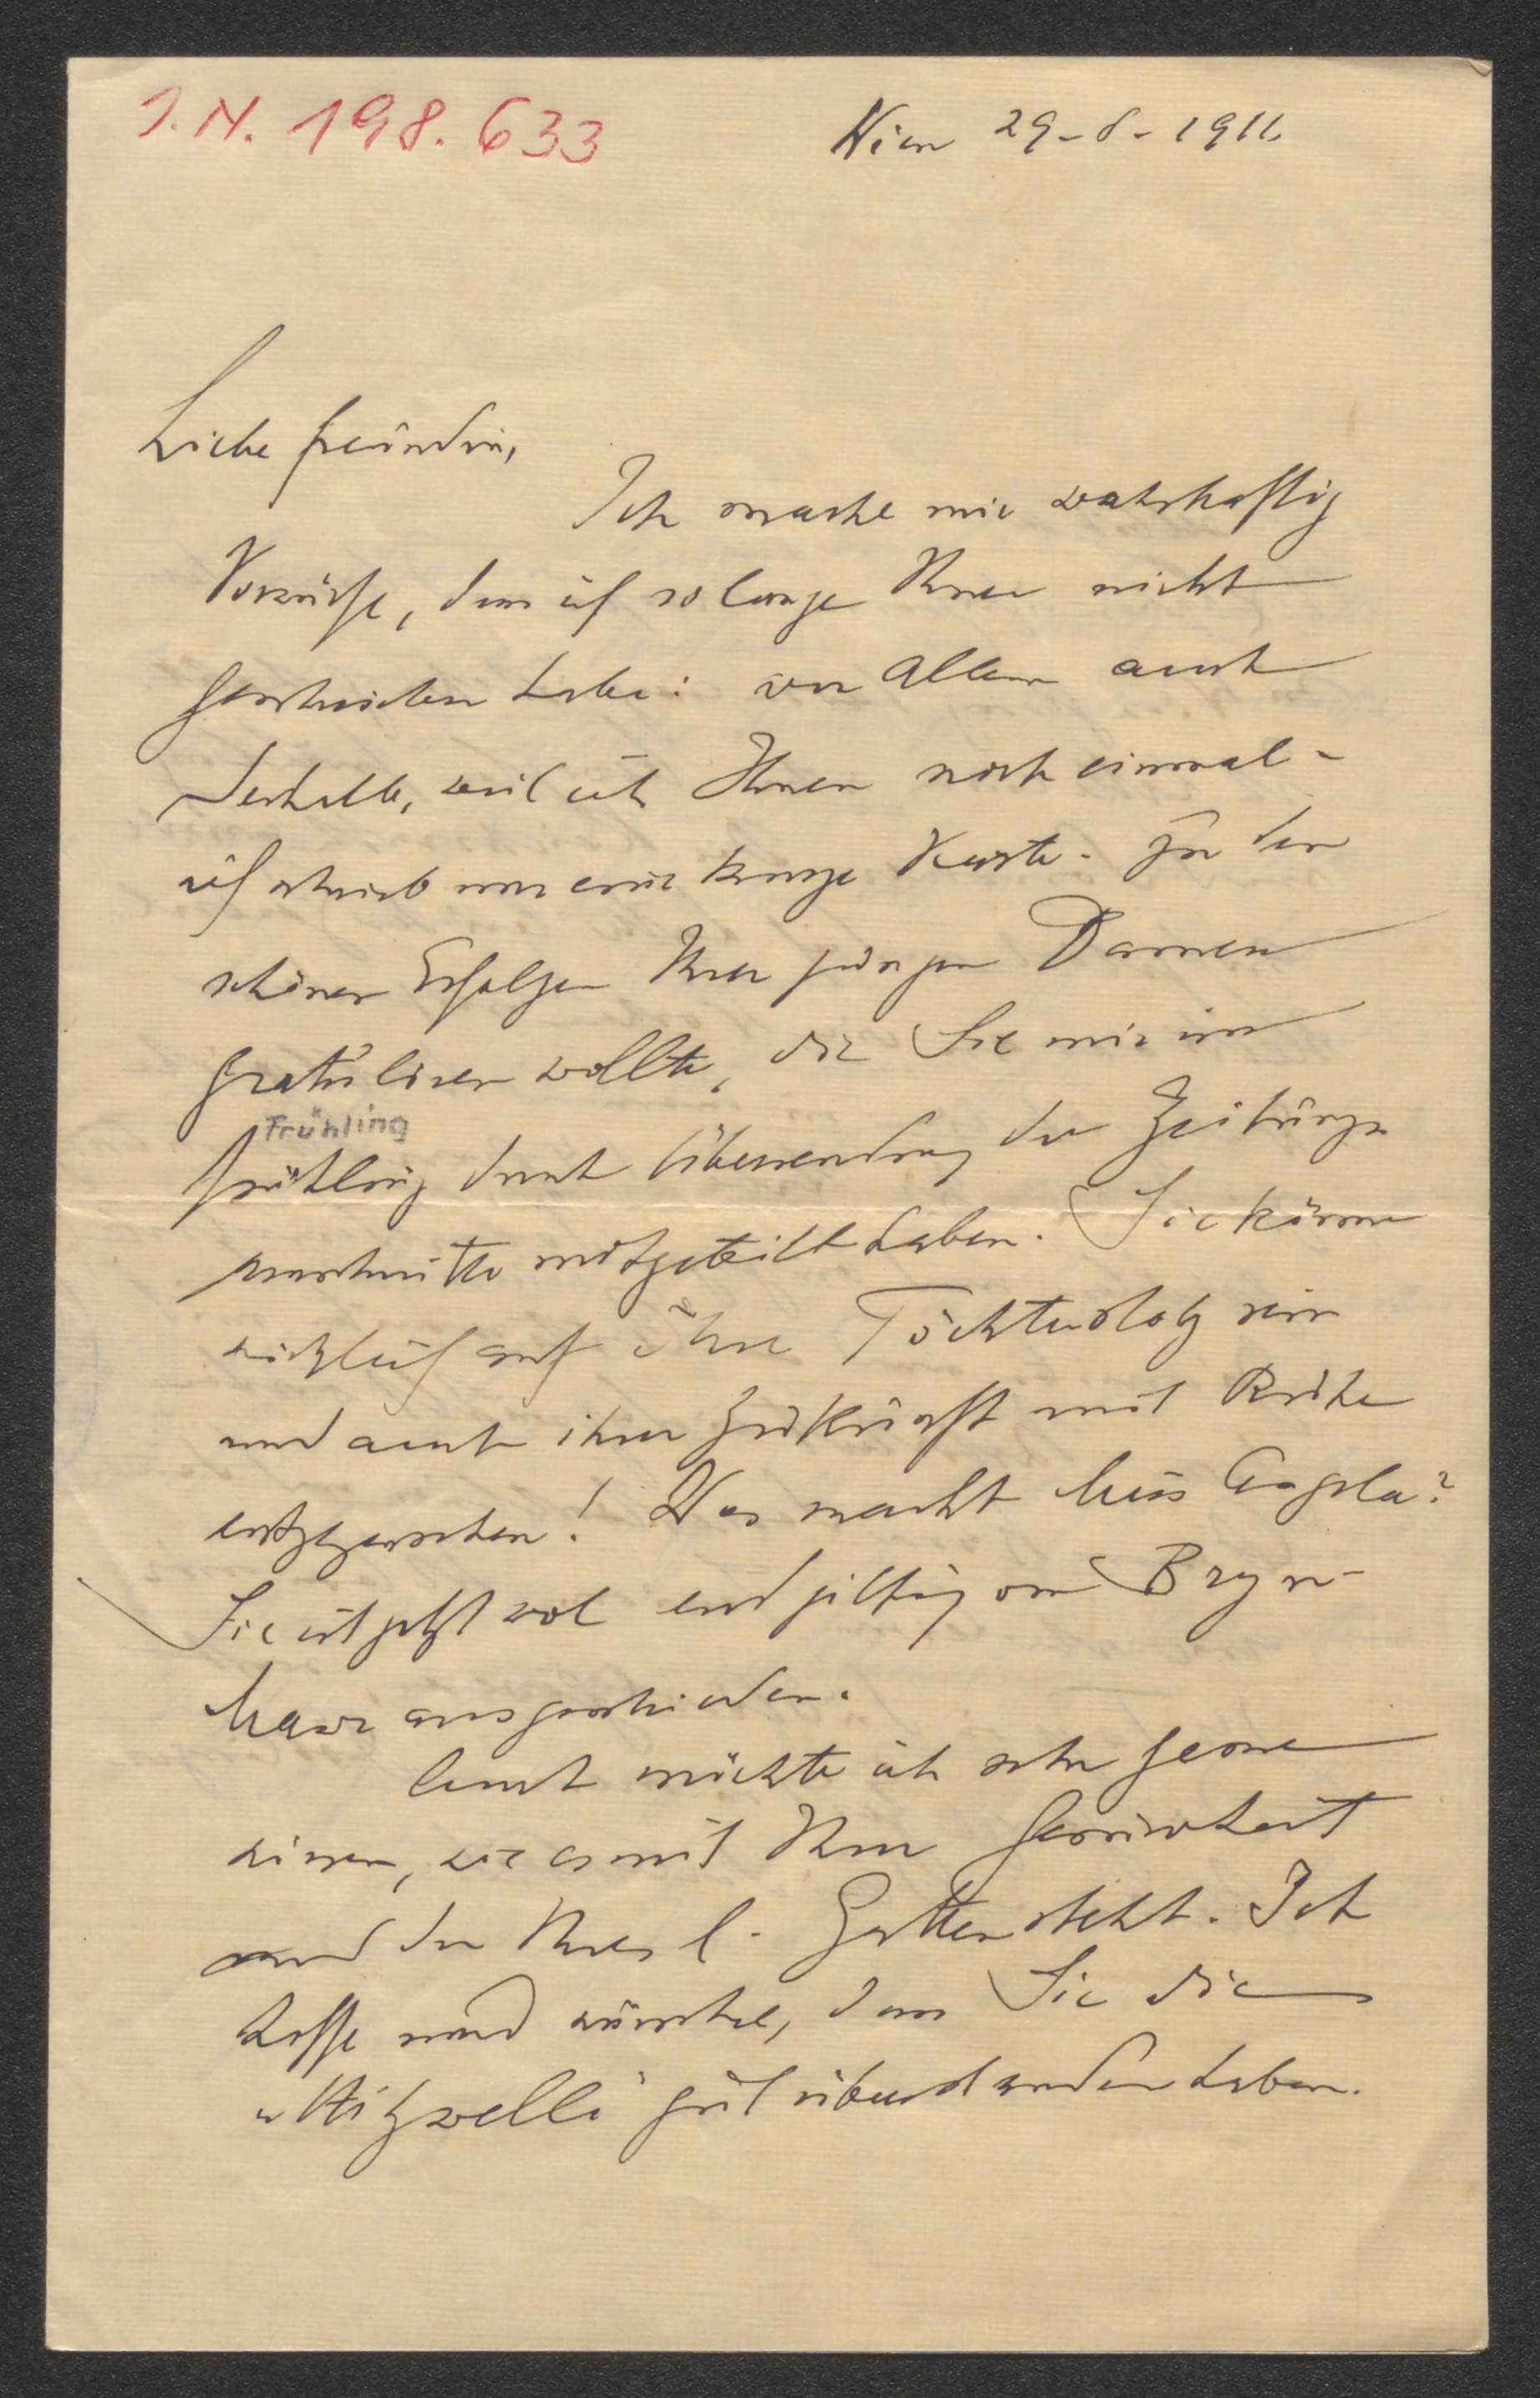 I.N. 198.633
Wien 29-8-1911.
Liebe Freundin,
Ich mache mir wahrhaftig
Vorwürfe, dass ich so lange Ihnen nicht
geschrieben habe: vor Allem auch
deshalb, weil ich Ihnen noch einmal -
ich schrieb nur eine kurze Karte - zu den
schönen Erfolgen Ihrer jungen Damen
gratuliren wollte, die Sie mir im
Frühling
Frühling durch Übersendung der Zeitungs
ausschnitte mitgeteilt haben. Sie können
wirklich auf Ihre Töchter stolz sein
und auch ihrer Zukunft mit Ruhe
entgegensehen! Was macht Miss Angela?
Sie ist jetzt wol endgiltig von Bryn-
Mawr ausgeschieden.
Auch möchte ich sehr gerne
wissen, wie es mit Ihrer Gesundheit
und der Ihres l. Gatten steht. Ich
hoffe und wünsche, dass Sie die
„Hitzwelle" gut überstanden haben.